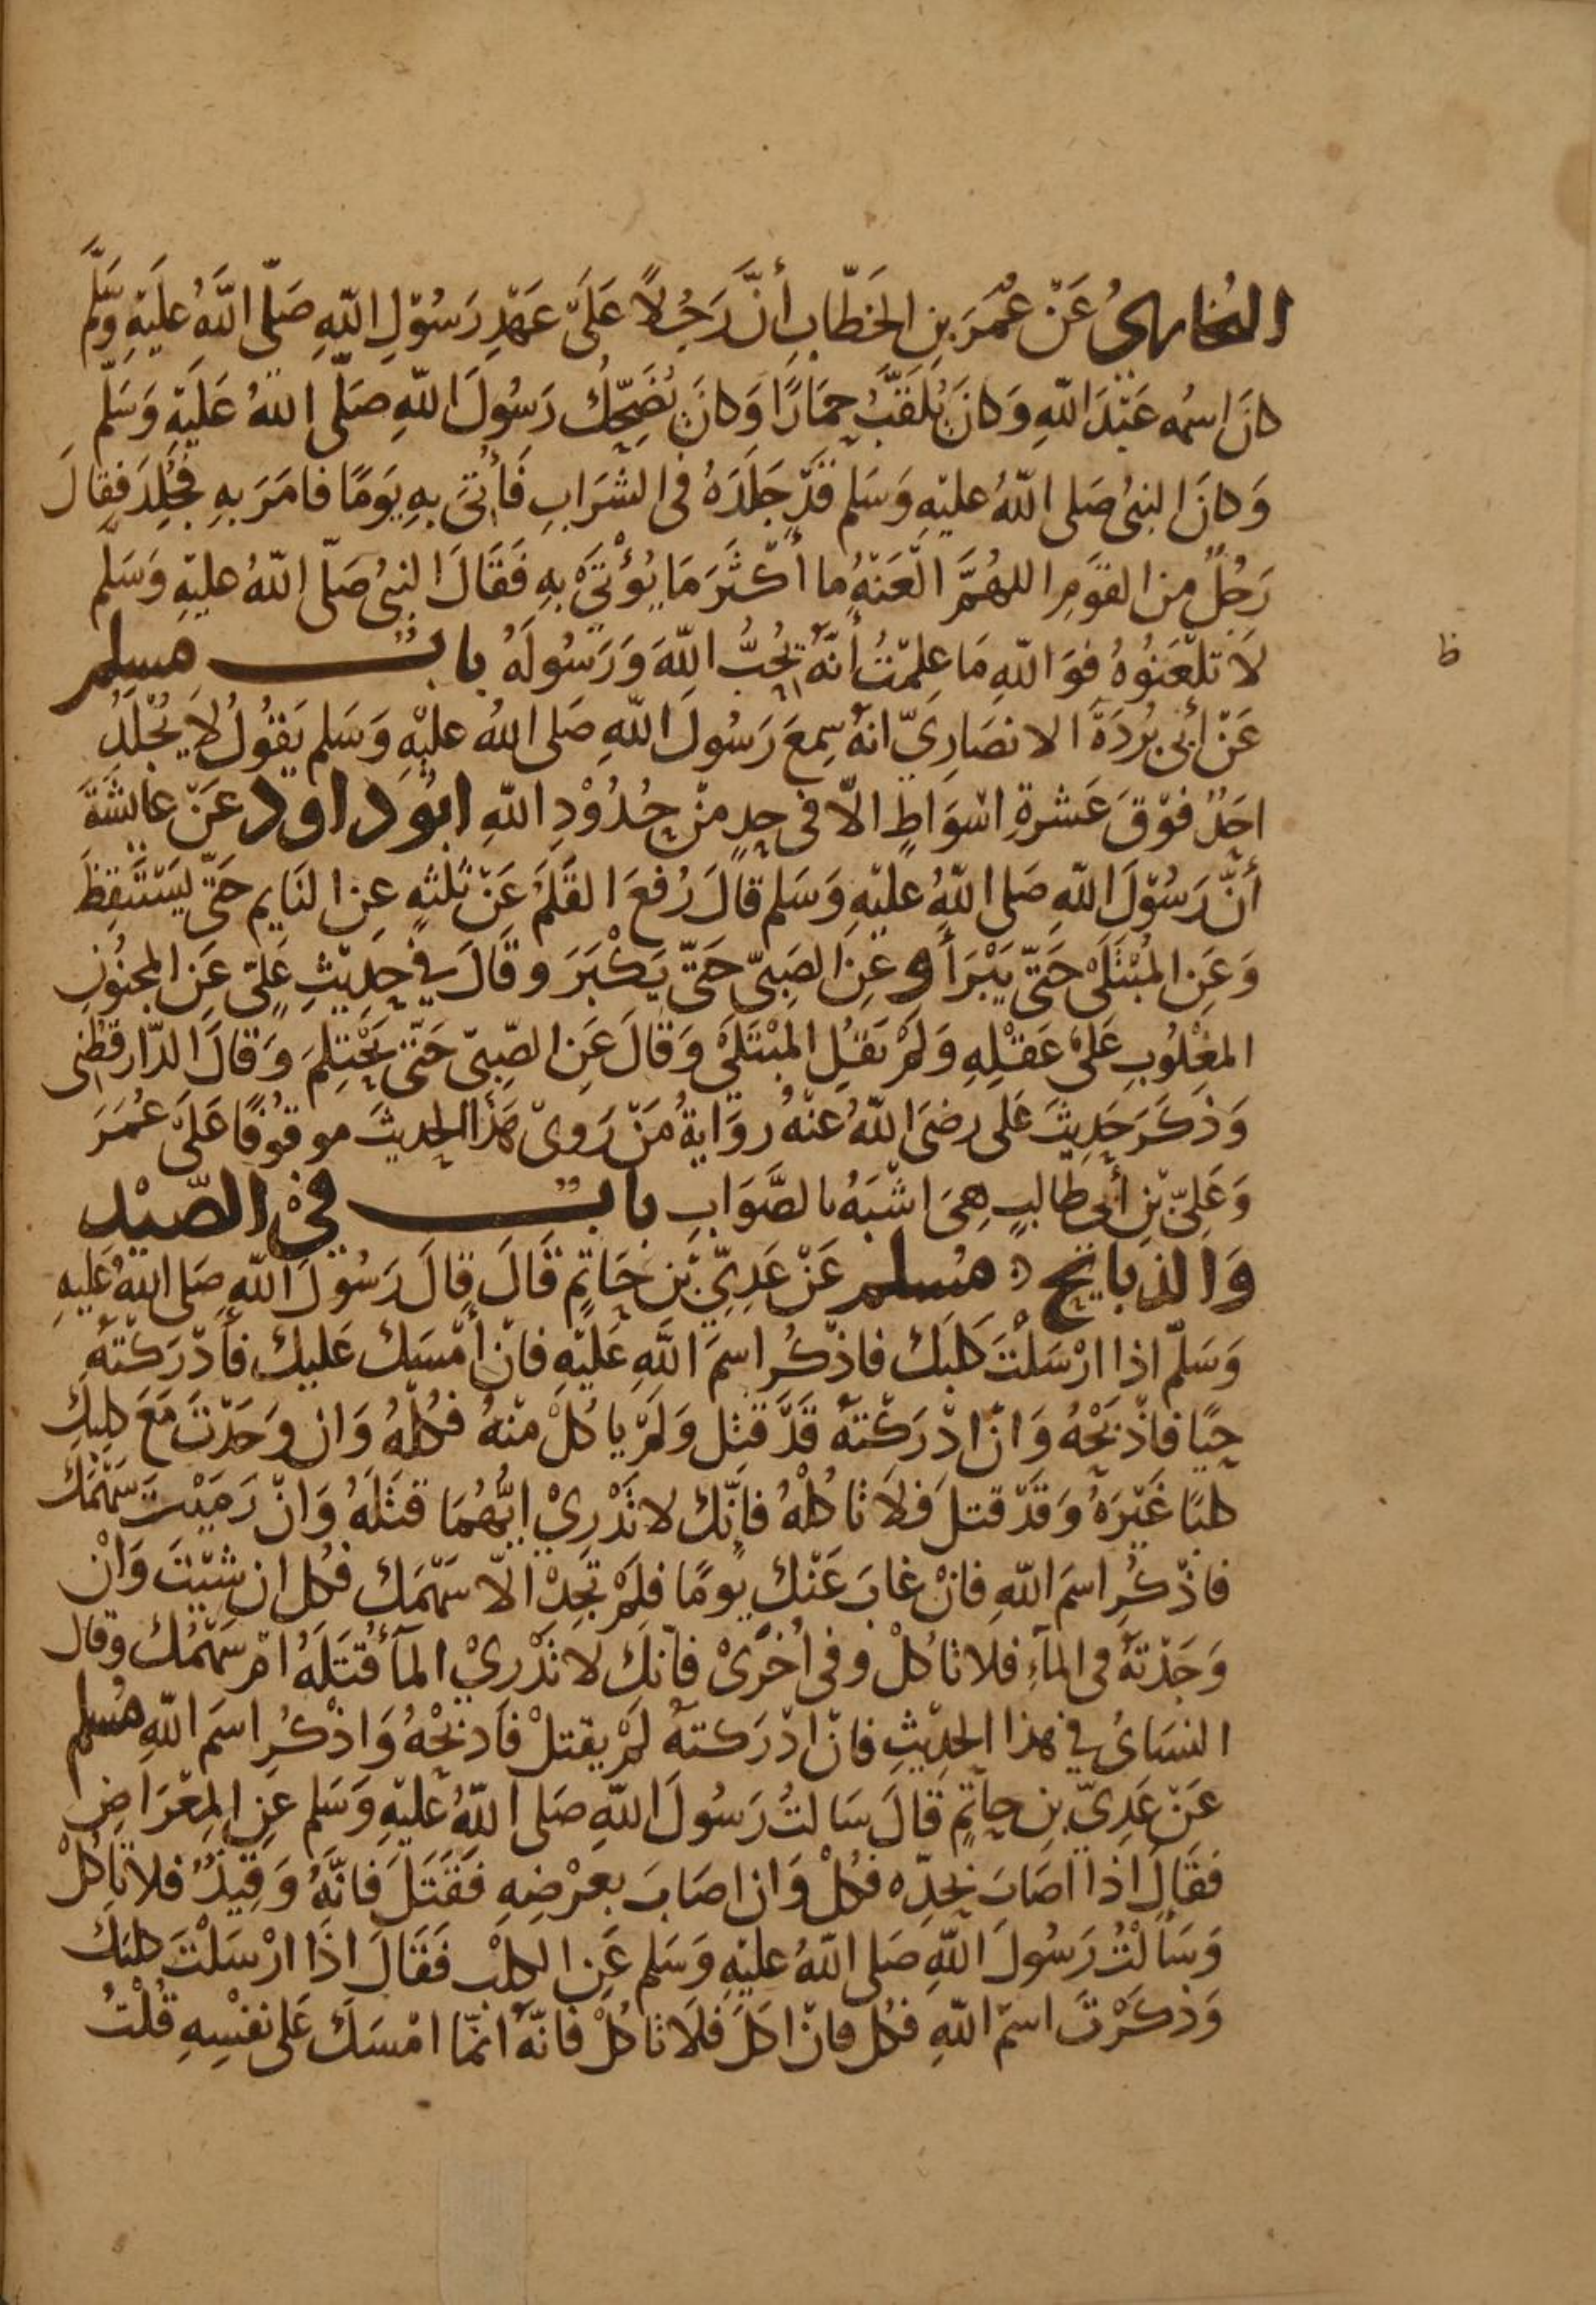 البُخَارِيُّ عَنْ عُمَرَ بنِ الخَطَّابِ أنَّ رَجُلاً عَلَى عَهْدِ رَسُوْلِ اللهِ صَلَّى اللهُ عَلَيْهِ وَسَلَّمَ
كانَ اسمُه عَبْدَ اللهِ وَكانَ يُلَقَّبُ حِمَارًا وَكانَ يُضَحِّكُ رَسُولَ اللهِ صَلَّى اللهُ عَلَيْهِ وَسَلَّم
وَكانَ النبىُ صَلى اللهُ عليْهِ وَسَلم قَدْ جَلَدَهُ فى الشَرَابِ فَأُتىَ بِهِ يَوْمًا فامَرَ بهِ فجُلِدَ فقالَ
رَجُلٌ مِنَ القَوْمِ اللهُمَّ الْعَنْهُ ما أكْثَرَ مَا يُؤْتَى بهِ فَقَالَ النبىُ صَلّى اللهُ عليْهِ وَسَلَّم
لاَ تلْعَنُوهُ فوَ اللهِ مَا عِلمْتُ أنَّهُ يُحِبُّ اللهَ وَرَسُولَهُ بابٌ مسلم
ظ
عَنْ أبى بُرْدَةَ الانصَارِيّ انهُ سِمعَ رَسُولَ اللهِ صَلى اللهُ عليْهِ وَسَلم يَقُولُ لاَ يُجْلَدُ
احَدٌ فوْقَ عَشرةِ اسْوَاطٍ الاّ فى حدٍ مِنْ حُدُوْدِ اللهِ ابُو داود عَنْ عائشَةَ
أنَّ رَسُوْلَ اللهِ صَلى اللهُ عليْهِ وَسَلم قالَ رُفعَ القَلَمُ عَنْ ثلثةٍ عنِ النَايم حَتّى يَسْتَيقِظَ
وَعَنِ المُبْتَلَى حَتّى يَبْرَأ وعَنِ الصَبىّ حَتّى يَكْبَرَ وقَالَ فِي حَدِيْثِ عَلىٍّ عَنِ المجنُونِ
المغْلُوبِ عَلىَ عَقْلِهِ وَلَمْ يَقُلِ المُبْتَلَى وَقَالَ عَنِ الصَّبىّ حَتّى يَحْتلِمَ وَقالَ الدّارقطنى
وَذكَرَ حَدِيثَ عَلى رضىَ اللهُ عنْهُ روَايةُ مَنْ رَوىْ هَذا الحديثَ موقوُفًا عَلىَ عُمَرَ
وَعَلِىّ بْنِ أبي طالبٍ هِىَ اشْبَهُ بالصَّوَابِ بابٌ فىْ الصَّيْدِ
وَالذبايحِ ٥ مُسلم عَنْ عَدِيّ بْنِ حَاتمٍ قَالَ قالَ رَسُولَ اللهِ صَلى اللهُ عَليهِ
وَسَلّم اذا ارْسَلْتَ كلبَك فاذْكُرِ اسمَ اللهِ عَليْهِ فانْ أمْسَك عَليك فأدْرَكتَهُ
حيًّا فاذْبَحْهُ وَانْ ادْرَكْتَهُ قَدْ قتل وَلمْ ياكُلْ مِنْهُ فكُلْهُ وَان وَجَدْتَ مَعَ كلبِك
كلبًا غَيْرَهُ وَقَدْ قتلَ فلاَ تاكُلْهُ فإنّك لا تَدْرِيْ ايُّهُمَا قتَلَهُ وَانْ رَمَيْتَ سَهْمَك
فاذْكُرِ اسمَ اللهِ فانْ غابَ عَنْك يومًا فلَمْ تَجِدْ الاّ سَهْمَك فكل ان شيْتَ وَانْ
وَجَدْتَهُ فى المآءِ فلا تاكُلْ وفى اُخْرَىْ فانّك لا تدْرِيْ المآءُ قتَلَهُ امْ سَهْمُك وقال
النسَائىُ فى هذا الحدِيْثِ فانْ ادْرَكتَهُ لمْ يقتلْ فَاذبَحْهُ وَاذْكُرِ اسَم اللهِ مُسلم
عَنْ عَدِيّ بنِ حاتمٍ قَالَ سَالتُ رَسُولَ اللهِ صَلى اللهُ عليْهِ وَسَلم عَنِ المِعْرَاضِ
فَقَالَ اذا اصَابَ بحدّه فكُلْ وَان اصَابَ بعرْضِهِ فَقَتَلَ فانّهُ وَقِيْذٌ فلا تاكُلْ
وَسَألتُ رَسُولَ اللهِ صَلى اللهُ عليْهِ وَسَلم عَنِ الكلْب فَقَالَ اذَا ارْسَلْتَ كلبَك
وَذكَرْتَ اسمَ اللهِ فكُل فانْ اكَلَ فلَا تاكُلْ فانّهُ انمّا امْسَكَ عَلى نفْسِهِ قُلْتُ